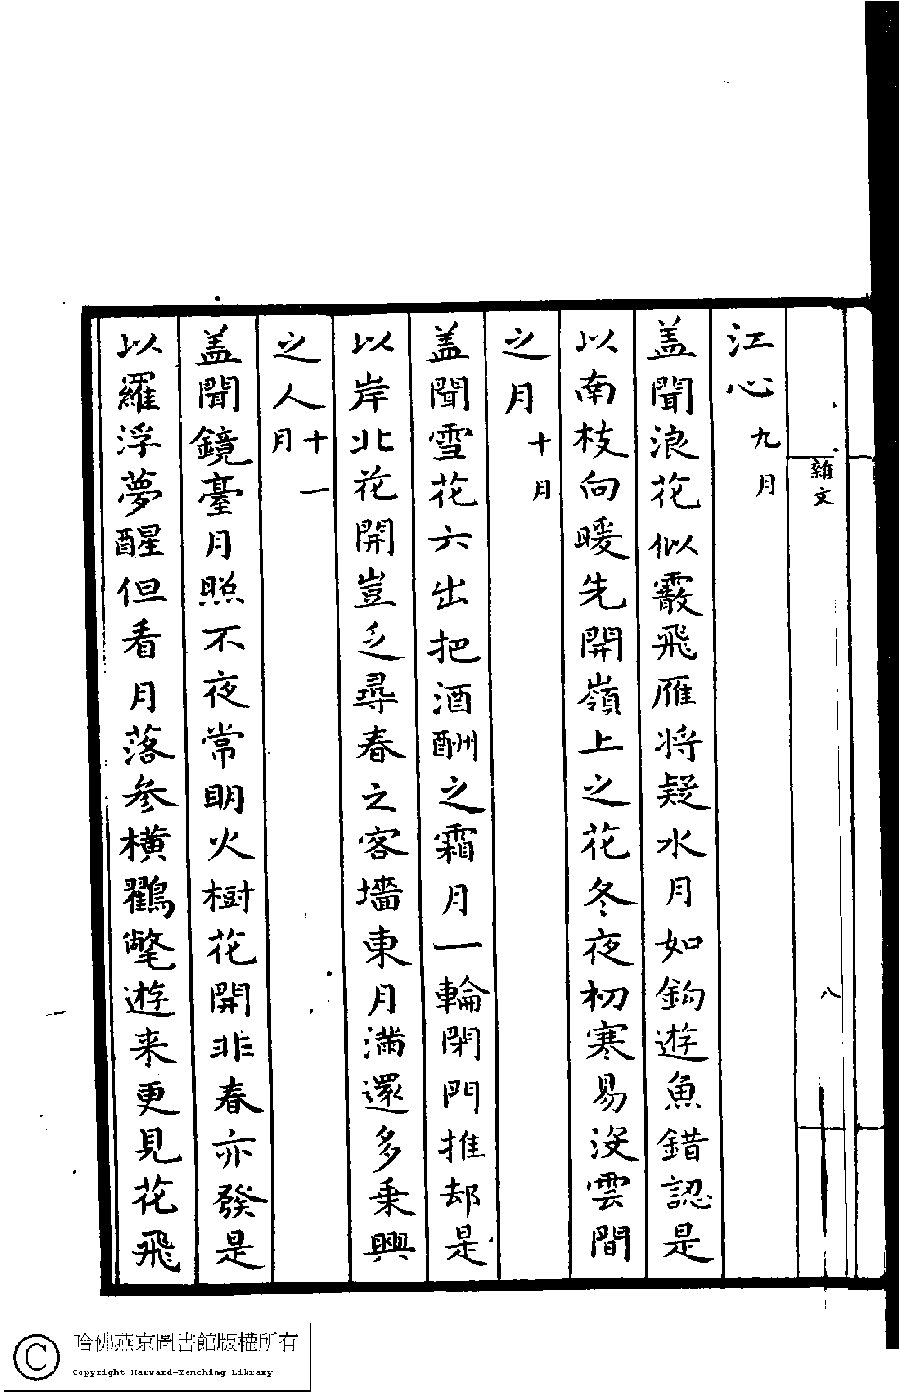 雜文
八
江心九月
盖聞浪花似霰飛雁将疑水月如鈎遊魚錯認是
以南枝向暖先開嶺上之花冬夜初寒易没雲間
之月十月
盖聞雪花六出把酒酬之霜月一輪閉門推却是
以岸北花開豈乏尋春之客墻東月滿還多乗興
之人十一月
盖聞鏡臺月照不夜常明火樹花開非春亦發是
以羅浮夢醒但看月落参橫鸛氅遊来更見花飛
哈佛燕京圖書館版權所有
Copyright Harvard-Yenching Library